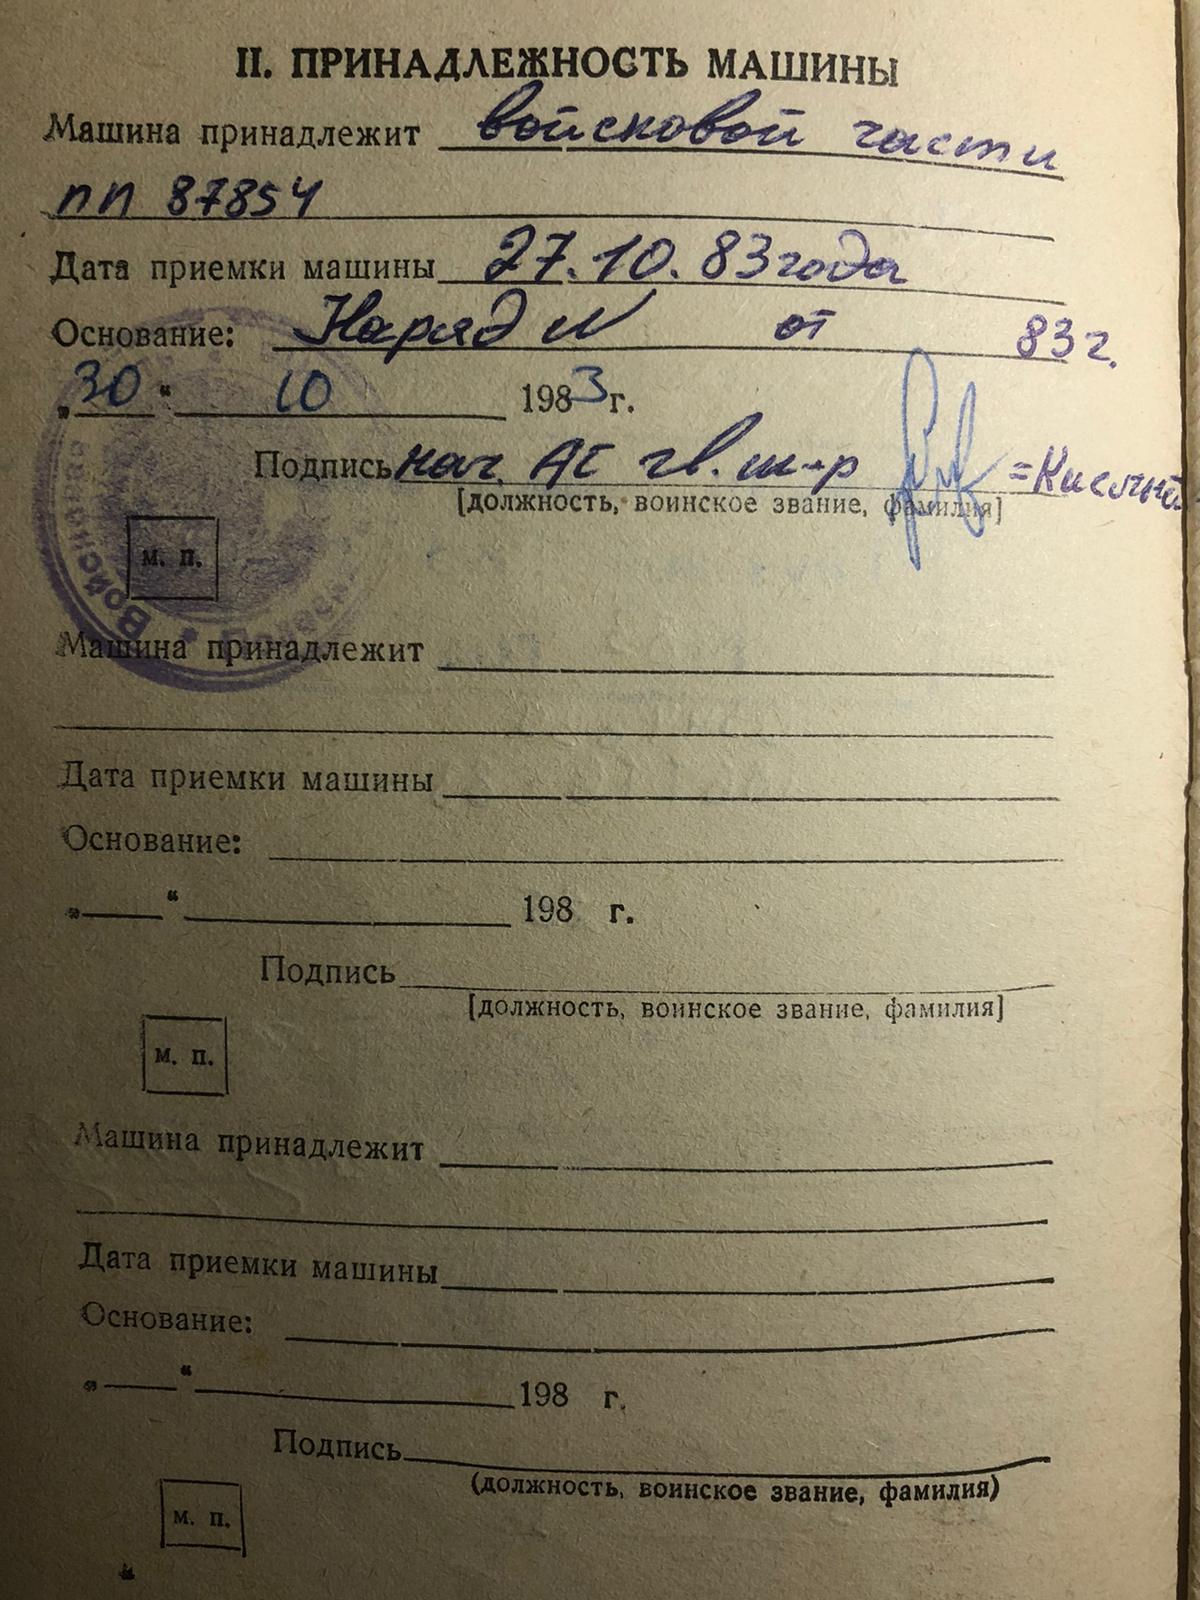 II. ПРИНАДЛЕЖНОСТЬ МАШИНЫ
Машина принадлежит войсковой части
пп 87854
Дата приемки машины 27.10.83 года
Основание: Наряд N от 83 г.
„30“ 10 1983 г.
Подпись нач. АС гв. м-р
[должность, воинское звание, фамилия]
м. п.
Войсковая
Машина принадлежит
Дата приемки машины
Основание:
„ “ 198 г.
Подпись
[должность, воинское звание, фамилия]
м. п.
Машина принадлежит
Дата приемки машины
Основание:
„ “ 198 г.
Подпись
(должность, воинское звание, фамилия)
м. п.